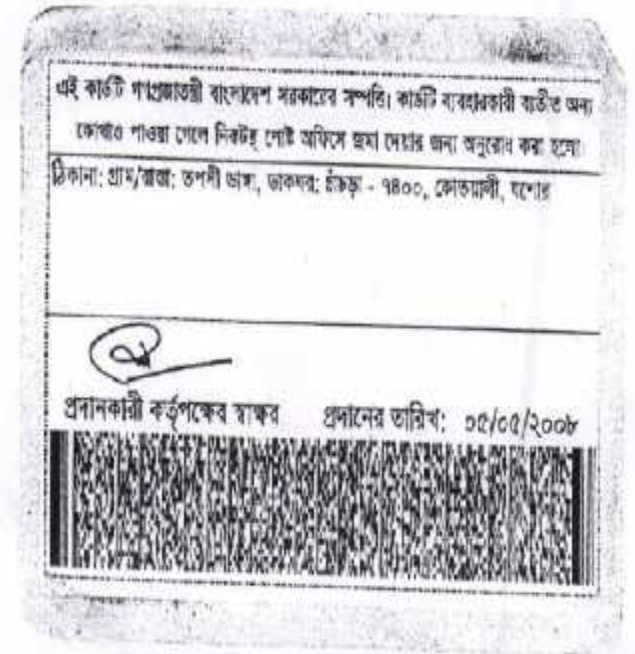 এই কার্ডটি গণপ্রজাতন্ত্রী বাংলাদেশ সরকারের সম্পত্তি। কার্ডটি ব্যবহারকারী ব্যতীত অন্য
কোথাও পাওয়া গেলে নিকটস্থ পোষ্ট অফিসে জমা দেয়ার জন্য অনুরোধ করা হলো।
ঠিকানা: গ্রাম/রাস্তা: তপসী ডাঙ্গা, ডাকঘর: চাঁচড়া - ৭৪০০, কোতয়ালী, যশোর
প্রদানকারী কর্তৃপক্ষের স্বাক্ষর প্রদানের তারিখ: ০৫/০৫/২০০৮